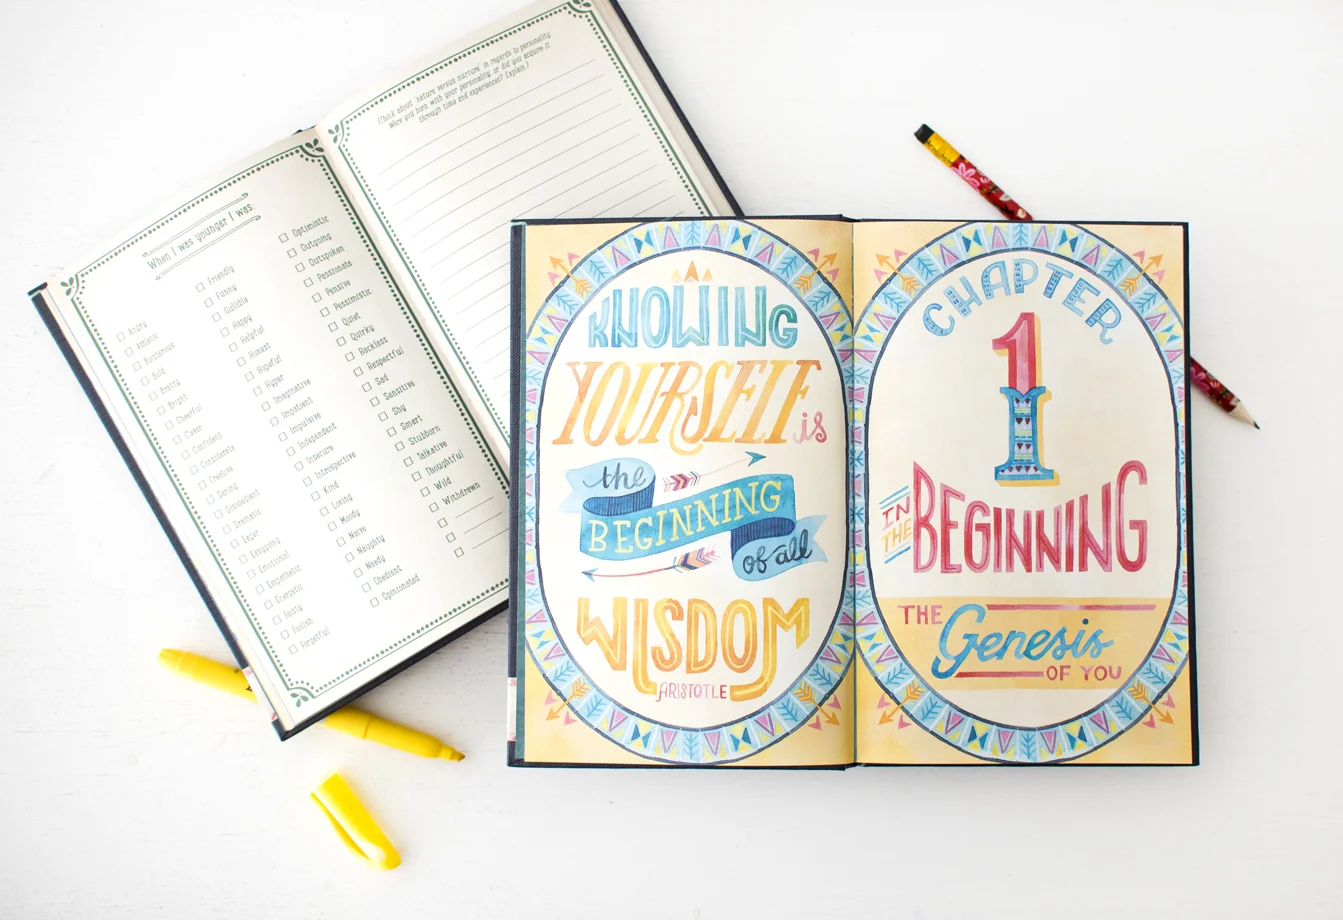 (Think about 'nature versus nurture' in regards to personality
Were you born with your personality, or did you acquire it
through time and experiences? Explain.)
When I was younger I was:
Angry
Athletic
Boisterous
Bold
Bratty
Bright
Cheerful
Clever
Confident
Considerate
Creative
Daring
Disobedient
Dramatic
Eager
Easygoing
Emotional
Empathetic
Energetic
Feisty
Foolish
Forgetful
Friendly
Funny
Gullible
Happy
Helpful
Honest
Hopeful
Hyper
Imaginative
Impatient
Impulsive
Independent
Insecure
Introspective
Kind
Loving
Moody
Naive
Naughty
Needy
Obedient
Opinionated
Optimistic
Outgoing
Outspoken
Passionate
Pensive
Pessimistic
Quiet
Quirky
Reckless
Respectful
Sad
Sensitive
Shy
Smart
Stubborn
Talkative
Thoughtful
Wild
Withdrawn
KNOWING
YOURSELF is
the
BEGINNING
of all
WISDOM
ARISTOTLE
CHAPTER
1
IN THE BEGINNING
THE
Genesis
OF YOU